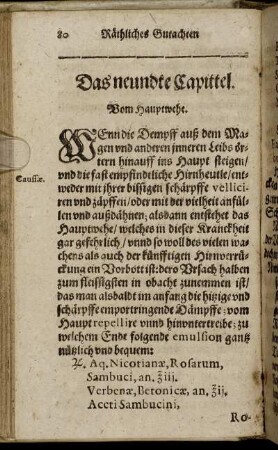 80 Räthliches Gutachten
Das neundte Capittel.
Vom Hauptwehe.
WEnn die Dempff auß dem Ma-
gen vnd anderen jnneren Leibs ör-
tern hinauff ins Haupt steigen/
Caussæ.
vnd die fast empfindtliche Hirnheutle/ ent-
weder mit jhrer bissigen schärpffe vellici-
ren vnd zäpffen/ oder mit der vielheit anfül-
len vnd außdähnen; alsdann entstehet das
Hauptwehe/ welches in dieser Kranckheit
gar gefehrlich/ vnnd so woll des vielen wa-
chens als auch der künfftigen Hirnverrü-
ckung ein Vorbott ist: dero Vrsach halben
zum fleissigsten in obacht zunemmen ist/
das man alsbaldt im anfang die hitzige vnd
schärpffe emportringende Dämpffe; vom
Haupt repellire vnnd hinntertreibe; zu
welchem Ende folgende emulsion gantz
nützlich vnd bequem:
℞. Aq. Nicotianæ, Rosarum,
Sambuci, an. ℥iij.
Verbenæ, Betonicæ, an. ℥ij.
Aceti Sambucini,
Ro-